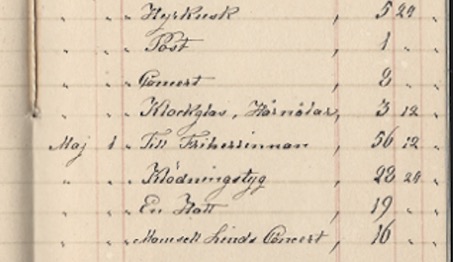 " " " Hyrkusk , 5 24 "
" " " Post , 1 " "
" " " Concert , 2 " "
" " " Klockglas, Hårnålar, 3 12 "
Maj 1 " Till Friherrinnan , 56 12 "
" " " Klädningstyg , 28 24 "
" " " En Hatt , 19 " "
" " " Mamsell Linds Concert , 16 " "